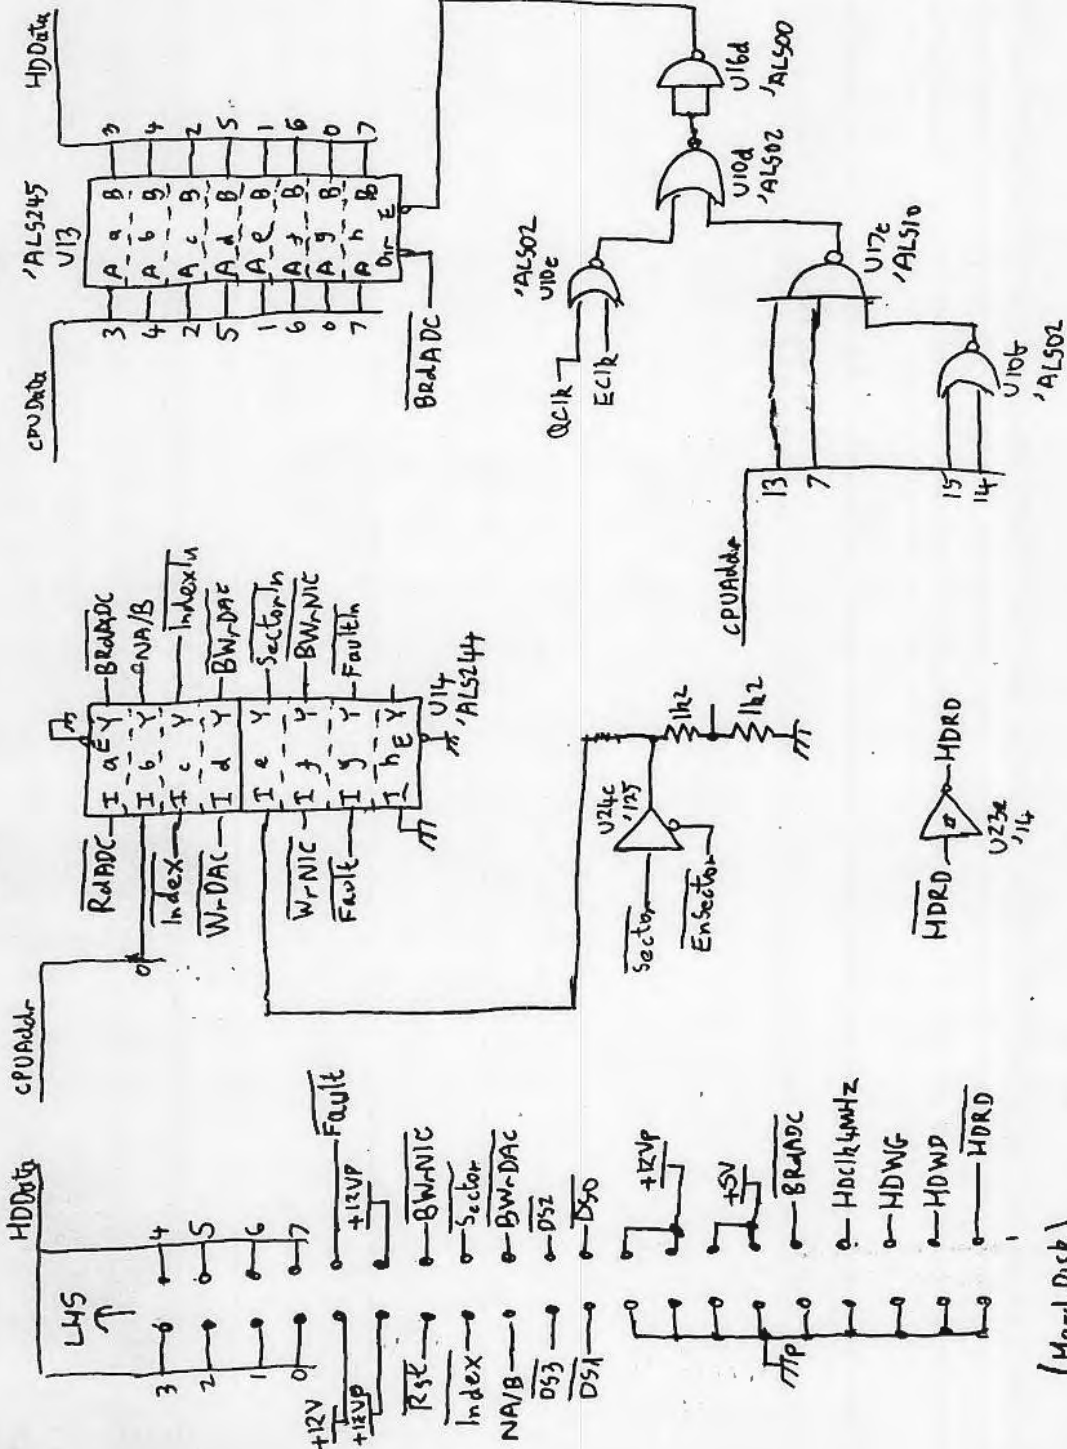 HDData
LHS
3
2
1
0
4
5
6
7
+12V
+12VP
Fault
+12VP
Rst
BWrNIC
Index
Sector
NA/B
BWrDAC
DS3
DS2
DS1
DS0
+12VP
+5V
P
BRdADC
HDClk4MHz
HDWG
HDWD
HDRD
(Hard Disk)
CPUAddr
0
RdADC
Index
WrDAC
WrNIC
Fault
I a E Y
I b Y
I c Y
I d Y
I e Y
I f Y
I g Y
I h E Y
BRdADC
NA/B
IndexIn
BWrDAC
SectorIn
BWrNIC
FaultIn
U14
'ALS244
Sector
EnSector
U24c
'125
1k2
1k2
HDRD
HDRD
U23e
'14
CPUData
HDData
'ALS245
U13
3 A a B 3
4 A b B 4
2 A c B 2
5 A d B 5
1 A e B 1
6 A f B 6
0 A g B 0
7 A h B 7
Dir E
BRdADC
QClk
EClk
'ALS02
U10c
U10d
'ALS02
U16d
'ALS00
CPUAddr
13
7
15
14
U17c
'ALS10
U10b
'ALS02